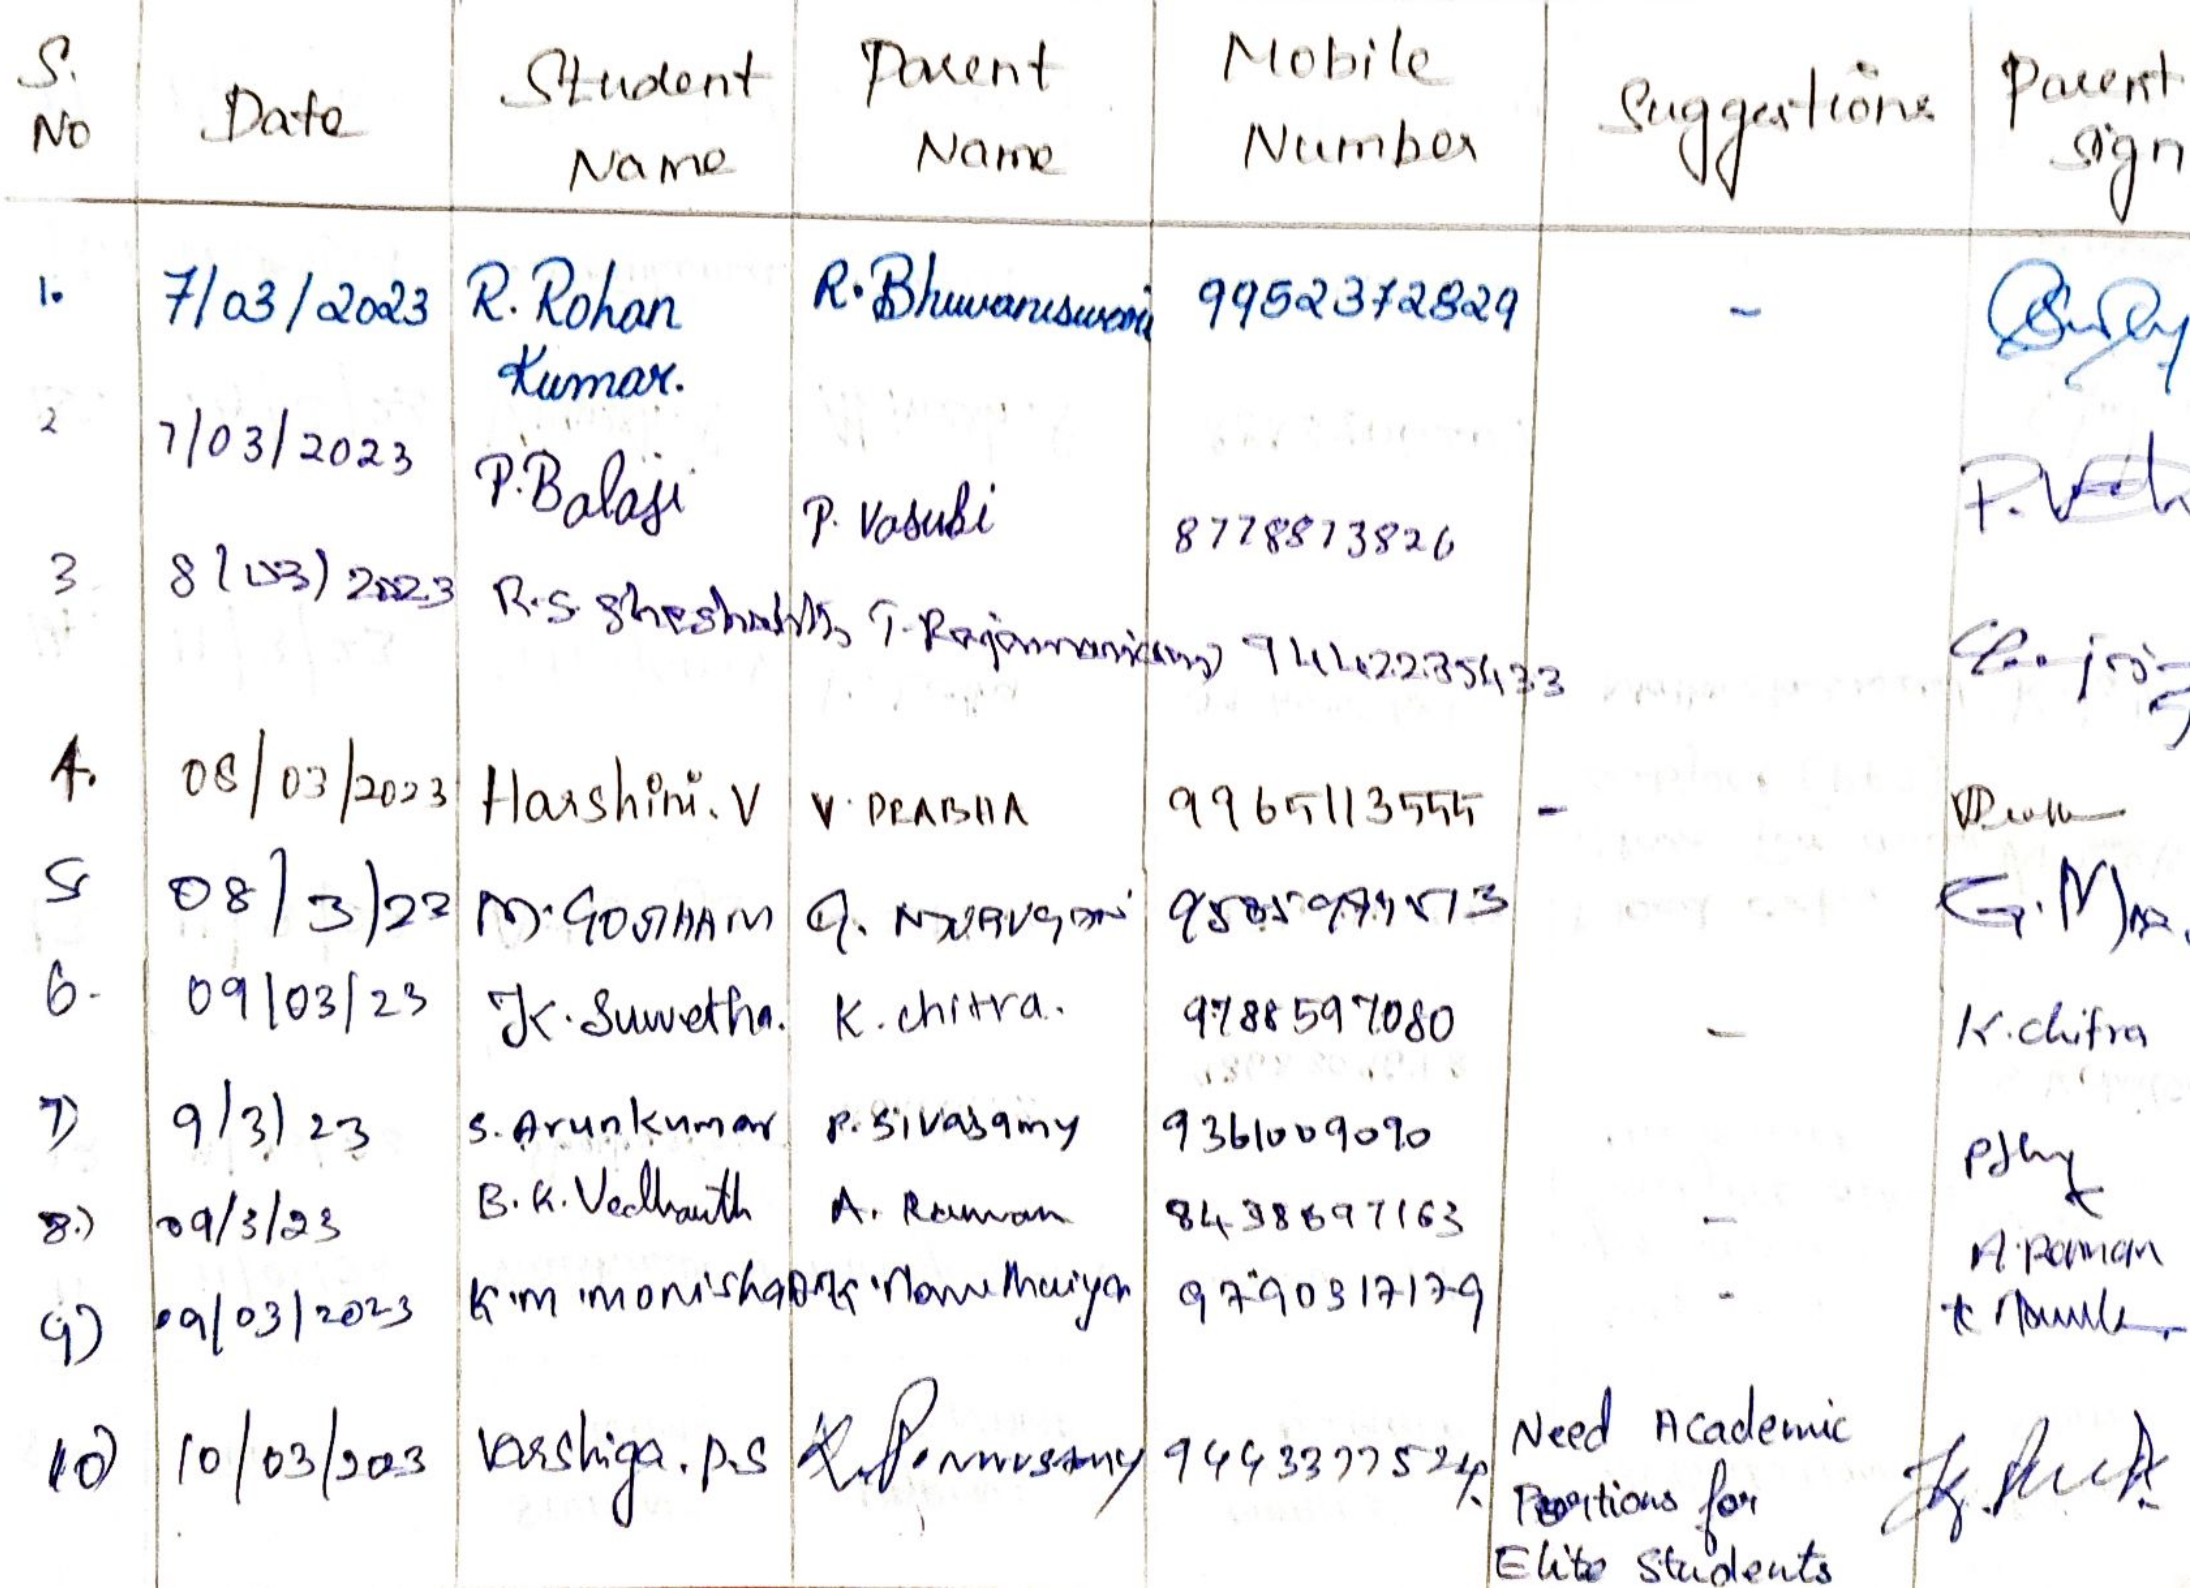 S. No Date Student Name Parent Name Mobile Number Suggestions Parent sign
1. 7/03/2023 R. Rohan R. Bhuvaneswari 9952372829 -
Kumar.
2 7/03/2023 P. Balaji P. Vasuki 8778873826
3 8/03/2023 R.S. T. Rajamanickam 9442235433
4. 08/03/2023 Harshini. V V. PRABHA 9965113555 -
5 08/3/23 M. GOUTHAM G.
6. 09/03/23 K. Suvetha. K. chitra. 9788597080 - K. chitra
7) 9/3/23 S. Arunkumar P. Sivasamy 9361009090
8.) 09/3/23 B.K. Vedhanth A. Raman 8438697163 - A. Raman
9) 09/03/2023 K.M. Monisha 9790317179 -
10) 10/03/203 Varshiga. P.S K. Ponnusamy 9443377524 Need Academic
Portions for
Elite Students